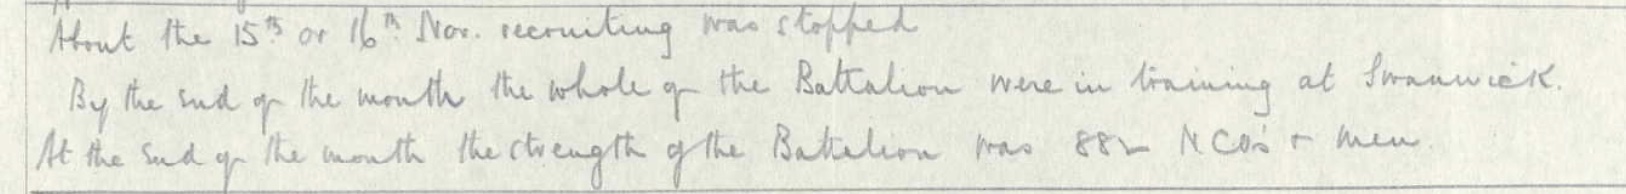 About the 15th or 16th Nov. recruiting was stopped
By the end of the month the whole of the Battalion were in training at Swanwick.
At the end of the month the strength of the Battalion was 882 NCOs + men.